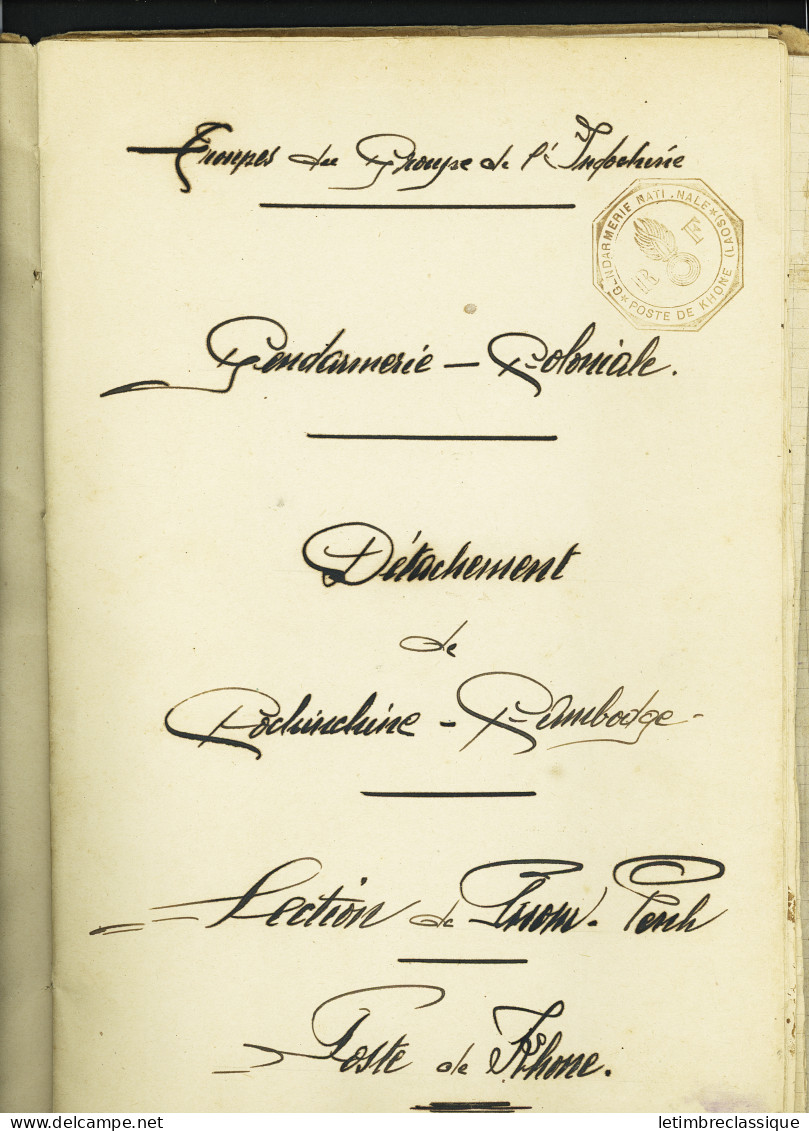 Troupes du Groupe de l'Indochine
GENDARMERIE NATI.NALE * POSTE DE KHONE (LAOS) *
RF
Gendarmerie - Coloniale.
Détachement
de
Cochinchine - Cambodge -
Section de Pnom-Penh
Poste de Khone.
delcampe.net
letimbreclassique